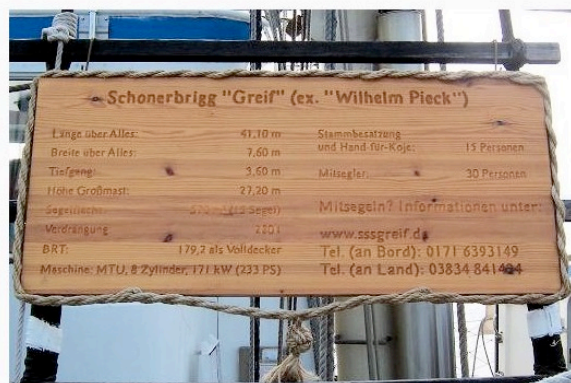 Schonerbrigg "Greif" (ex. "Wilhelm Pieck")
Länge über Alles: 41,10 m
Breite über Alles: 7,60 m
Tiefgang: 3,60 m
Höhe Großmast: 27,20 m
Segelfläche: 570 m² (15 Segel)
Verdrängung 280 t
BRT: 179,2 als Volldecker
Maschine: MTU, 8 Zylinder, 171 kW (233 PS)
Stammbesatzung
und Hand-für-Koje: 15 Personen
Mitsegler: 30 Personen
Mitsegeln? Informationen unter:
www.sssgreif.de
Tel. (an Bord): 0171 6393149
Tel. (an Land): 03834